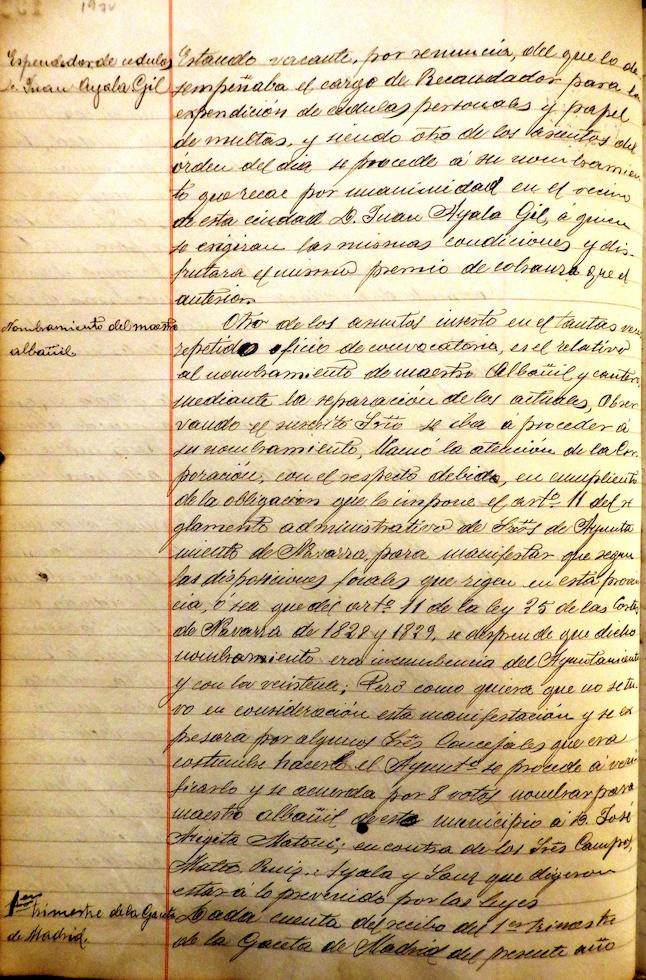 Expendedor de cédulas
D. Juan Ayala Gil
Estando vacante, por renuncia, del que lo de
sempeñaba el cargo de Recaudador para la
expendición de cédulas personales y papel
de multas, y siendo otro de los asuntos del
órden del dia se procede á su nombramien
to que recae por unanimidad en el vecino
de esta ciudad D. Juan Ayala Gil, á quien
se exigiran las mismas condiciones y dis-
frutará el mismo premio de cobranza que el
anterior.
Nombramiento del maestro
albañil
Otro de los asuntos inserto en el tantas veces
repetido oficio de convocatoria, es el relativo
al nombramiento de maestro Albañil y cantero,
mediante la separación de los actuales, Obser
vando el suscrito Srio se iba á proceder á
su nombramiento, llamó la atención de la Cor
poración, con el respeto debido, en cumplimto
de la obligacion que le impone el artº 11 del re
glamento administrativo de Srios de Ayunta
miento de Navarra, para manifestar que segun
las disposiciones forales que rigen en esta provin
cia, ó sea que del artº 11 de la ley 25 de las Cortes
de Navarra de 1828 y 1829, se desprende que dicho
nombramiento era incumbencia del Ayuntamiento
y con la veintena; Pero como quiera que no se tu
vo en consideración esta manifestación y se ex
presara por algunos Sres Concejales que era
costumbre hacerlo el Ayuntº se procede á veri
ficarlo y se acuerda por 8 votos nombrar para
maestro albañil de este municipio á D. José
Argeta Matoni; en contra de los Sres Campos,
Mateo, Ruiz, Ayala y Sanz que digeron
estar á lo prevenido por las leyes
1er trimestre de la Gaceta
de Madrid.
Dada cuenta del recibo del 1er trimestre
de la Gaceta de Madrid del presente año